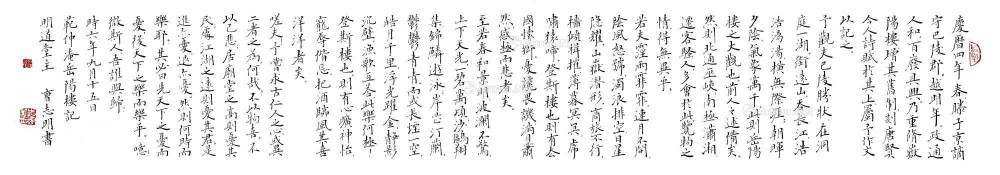 慶曆四年春滕子京謫
守巴陵郡越明年政通
人和百廢具興乃重脩嶽
陽樓增其舊制刻唐賢
今人詩賦於其上屬予作文
以記之
予觀夫巴陵勝狀在洞
庭一湖銜遠山吞長江浩
浩湯湯橫無際涯朝暉
夕陰氣象萬千此則岳陽
樓之大觀也前人之述備矣
然則北通巫峽南極瀟湘
遷客騷人多會於此覽物之
情得無異乎
若夫霪雨霏霏連月不開
陰風怒號濁浪排空日星
隱耀山嶽潛形商旅不行
檣傾楫摧薄暮冥冥虎
嘯猿啼登斯樓也則有去
國懷鄉憂讒畏譏滿目蕭
然感極而悲者矣
至若春和景明波瀾不驚
上下天光一碧萬頃沙鷗翔
集錦鱗游泳岸芷汀蘭
鬱鬱青青而或長煙一空
皓月千里浮光躍金靜影
沉璧漁歌互答此樂何極
登斯樓也則有心曠神怡
寵辱偕忘把酒臨風其喜
洋洋者矣
嗟夫予嘗求古仁人之心或異
二者之為何哉不以物喜不
以己悲居廟堂之高則憂其
民處江湖之遠則憂其君是
進亦憂退亦憂然則何時而
樂耶其必曰先天下之憂而
憂後天下之樂而樂乎噫
微斯人吾誰與歸
時六年九月十五日
範仲淹岳陽樓記
明道堂主 曹志明書